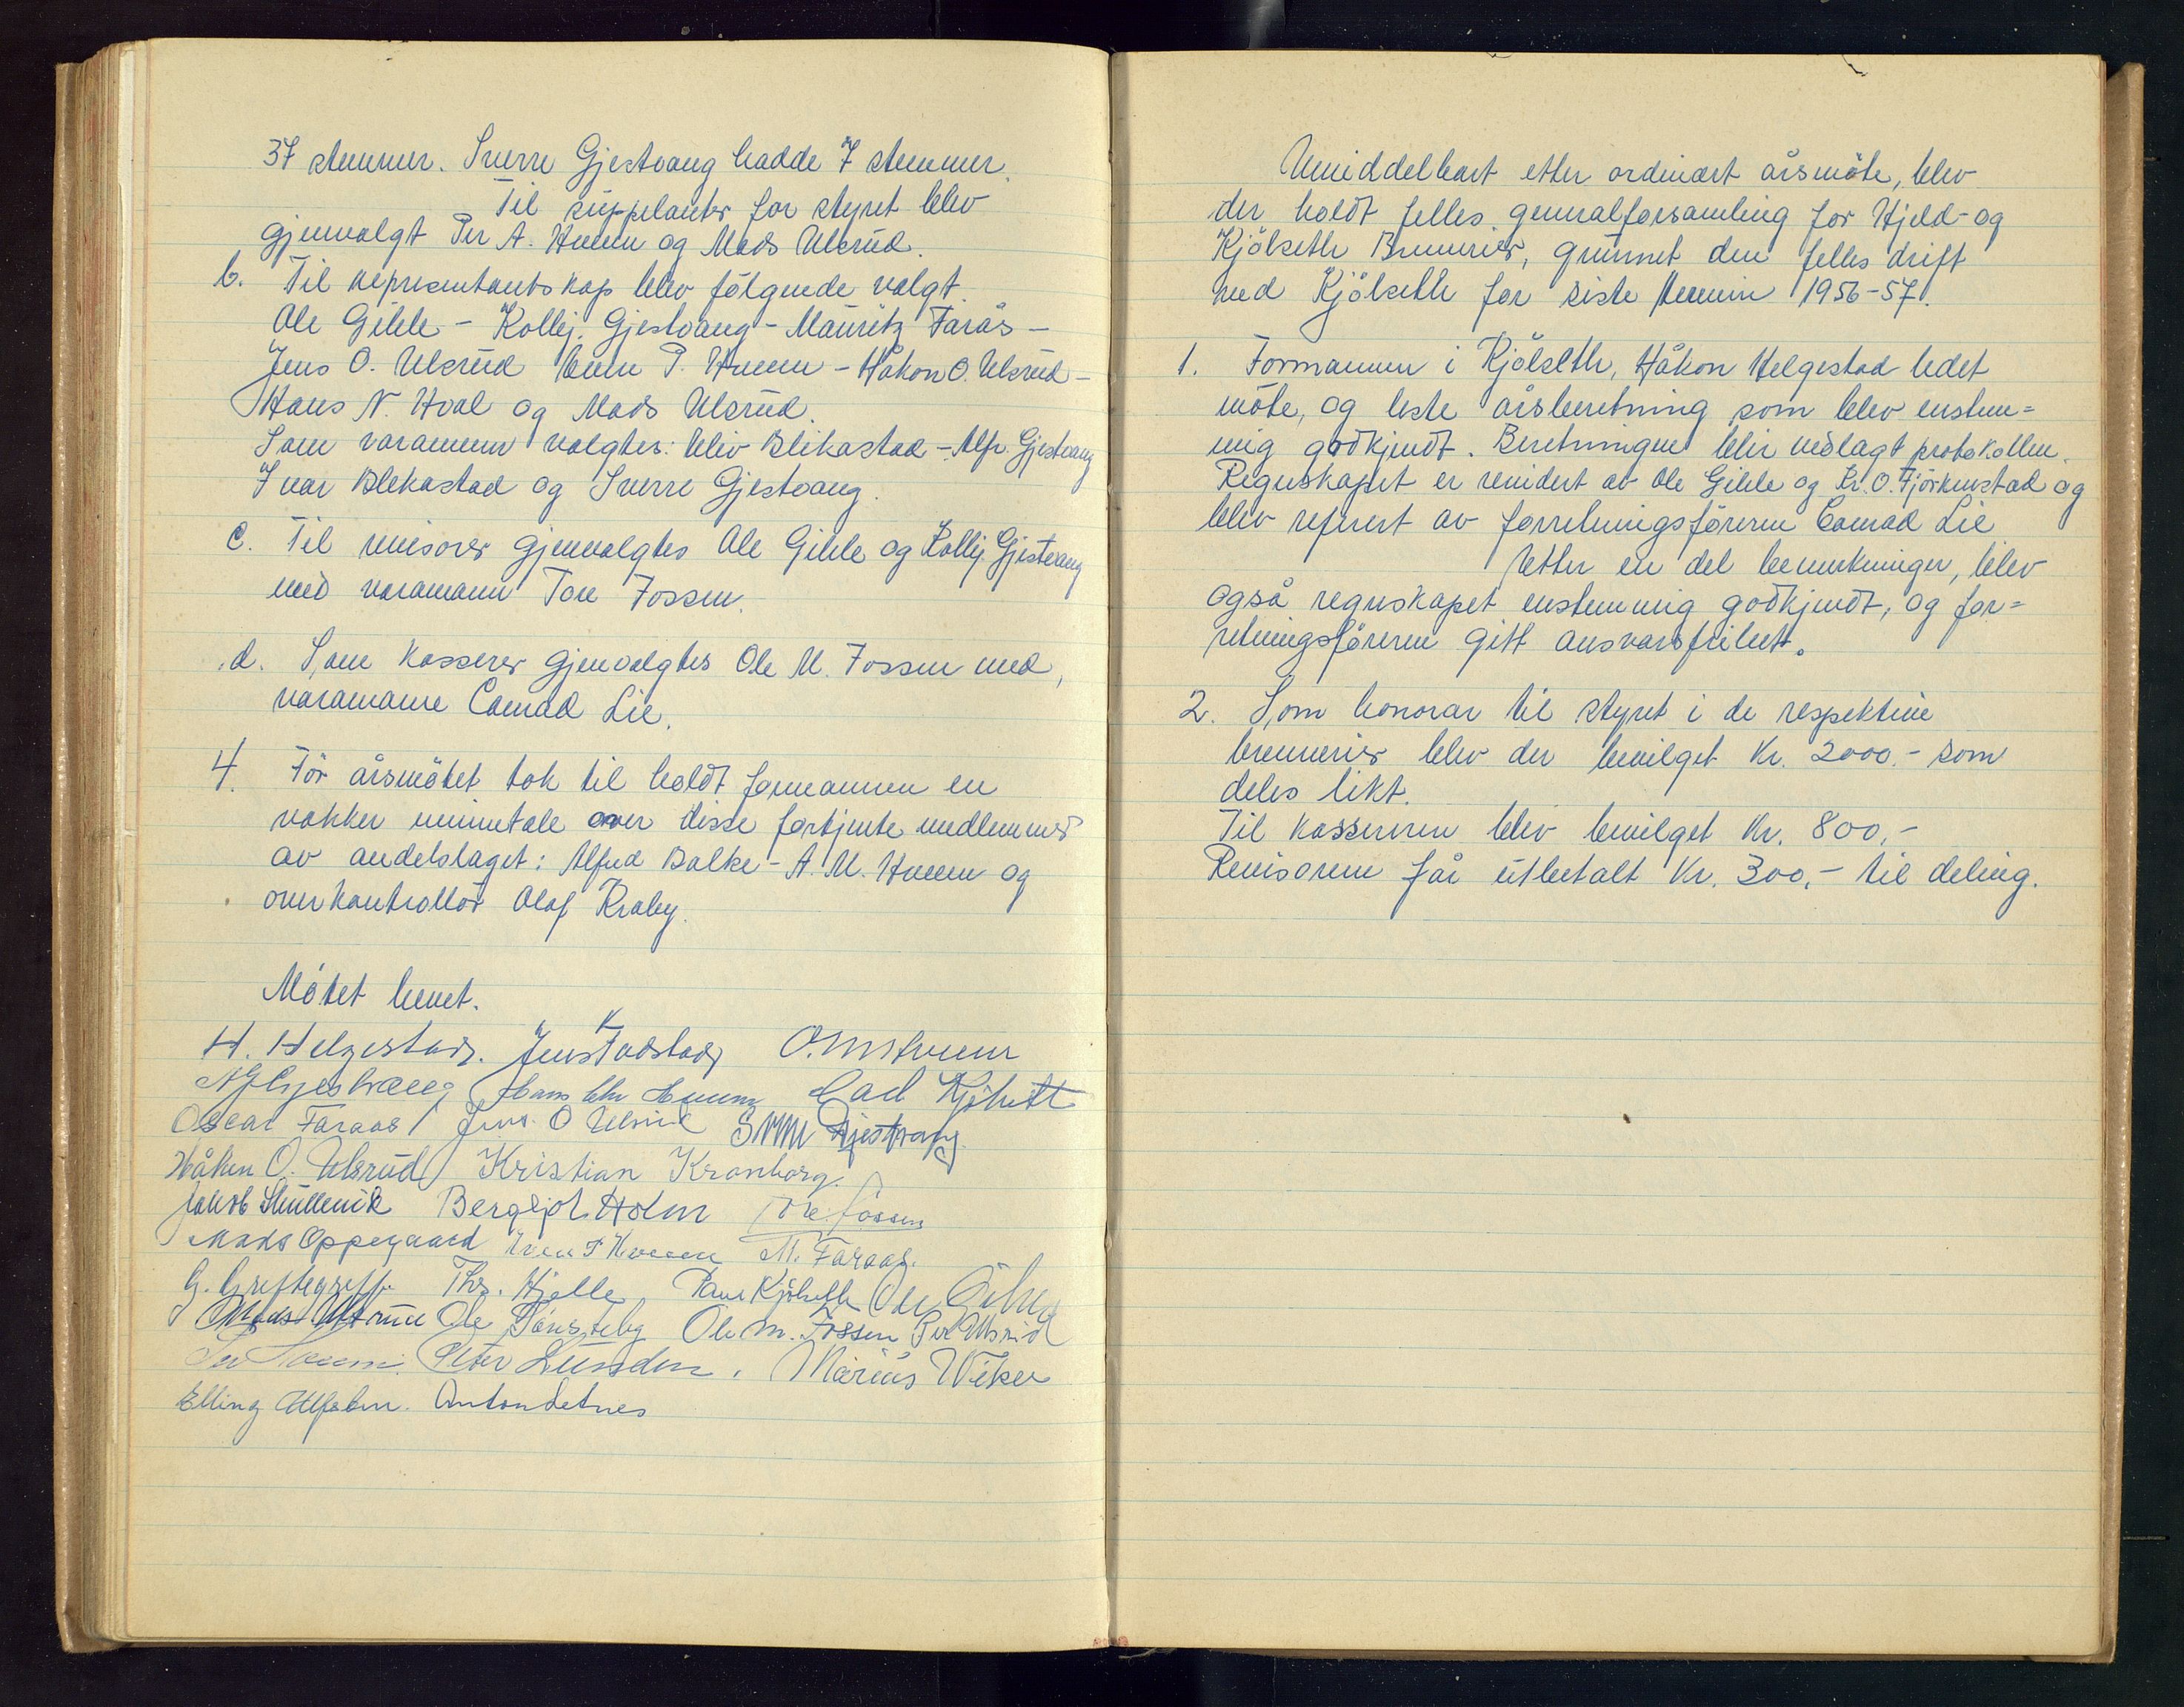 37 stemmer. Sverre Gjestvang hadde 7 stemmer.
Til suppelanter for styret blev
gjenvalgt Per A. Huuse og Mads Ulsrud.
b. Til representantskap blev fölgende valgt.
Ole Gihle - Kolbj. Gjestvang - Mauritz Farås -
Jens O. Ulsrud Even P. Hveem - Håkon O. Ulsrud -
Hans N. Hval og Mads Ulsrud.
Som varamenn valgtes: Eliv Blikastad - Alfr. Gjestvang
Ivar Blekastad og Sverre Gjestvang.
c. Til revisorer gjenvalgtes Ole Gihle og Kolbj. Gjestvang
med varamann Tore Fossen.
d. Som kasserer gjenvalgtes Ole M. Fossen med,
varamann Conrad Lie.
4. Før årsmötet tok til holdt formannen en
vakker minnetale over disse fortjente medlemmer
av andelslaget: Alfred Balke - A. M. Hveem og
overkontrollör Olaf Kraby.
Mötet hevet.
H. Helgestad. Jens K Tadstad O. M. Hveem
A Gjestvang Hans Chr Hveem Carl Kjölseth
Oscar Faraas Jens. O Ulsrud Sverre Gjestvang.
Håkon O. Ulsrud Kristian Kronborg.
Jakob Skullerud Bergljot Holm Tore Fossen
Mads Oppegaard Even P Hveem M. Faraas.
G. Greftegreff Ths. Hjelle Paul Kjölseth Ole Gihle
Mads Ulsrud Ole Sönsteby Ole M. Fossen Per Ulsrud
Peter Lunden. Marius Wiker
Elling Ulfsben. Anton Setnes
Umiddelbart etter ordinært årsmöte, blev
der holdt felles generalforsamling for Hjeld- og
Kjölseth Brennerier, grunnet den felles drift
ved Kjölseth for siste termin 1956-57.
1. Formannen i Kjölseth, Håkon Helgestad ledet
möte, og leste årsberetning som blev enstem=
mig godkjendt. Beretningen blir vedlagt protokollen.
Regnskapet er revidert av Ole Gihle og Kr. O. Fjörkenstad og
blev referert av forretningsföreren Conrad Lie
Etter en del bemerkninger, blev
også regnskapet enstemmig godkjendt, og for=
retningsföreren gitt ansvarsfrihet.
2. Som honorar til styret i de respektive
brennerier blev der bevilget Kr. 2000.- som
deles likt.
Til kassereren blev bevilget Kr. 800,-
Revisorene får utbetalt Kr. 300,- til deling.